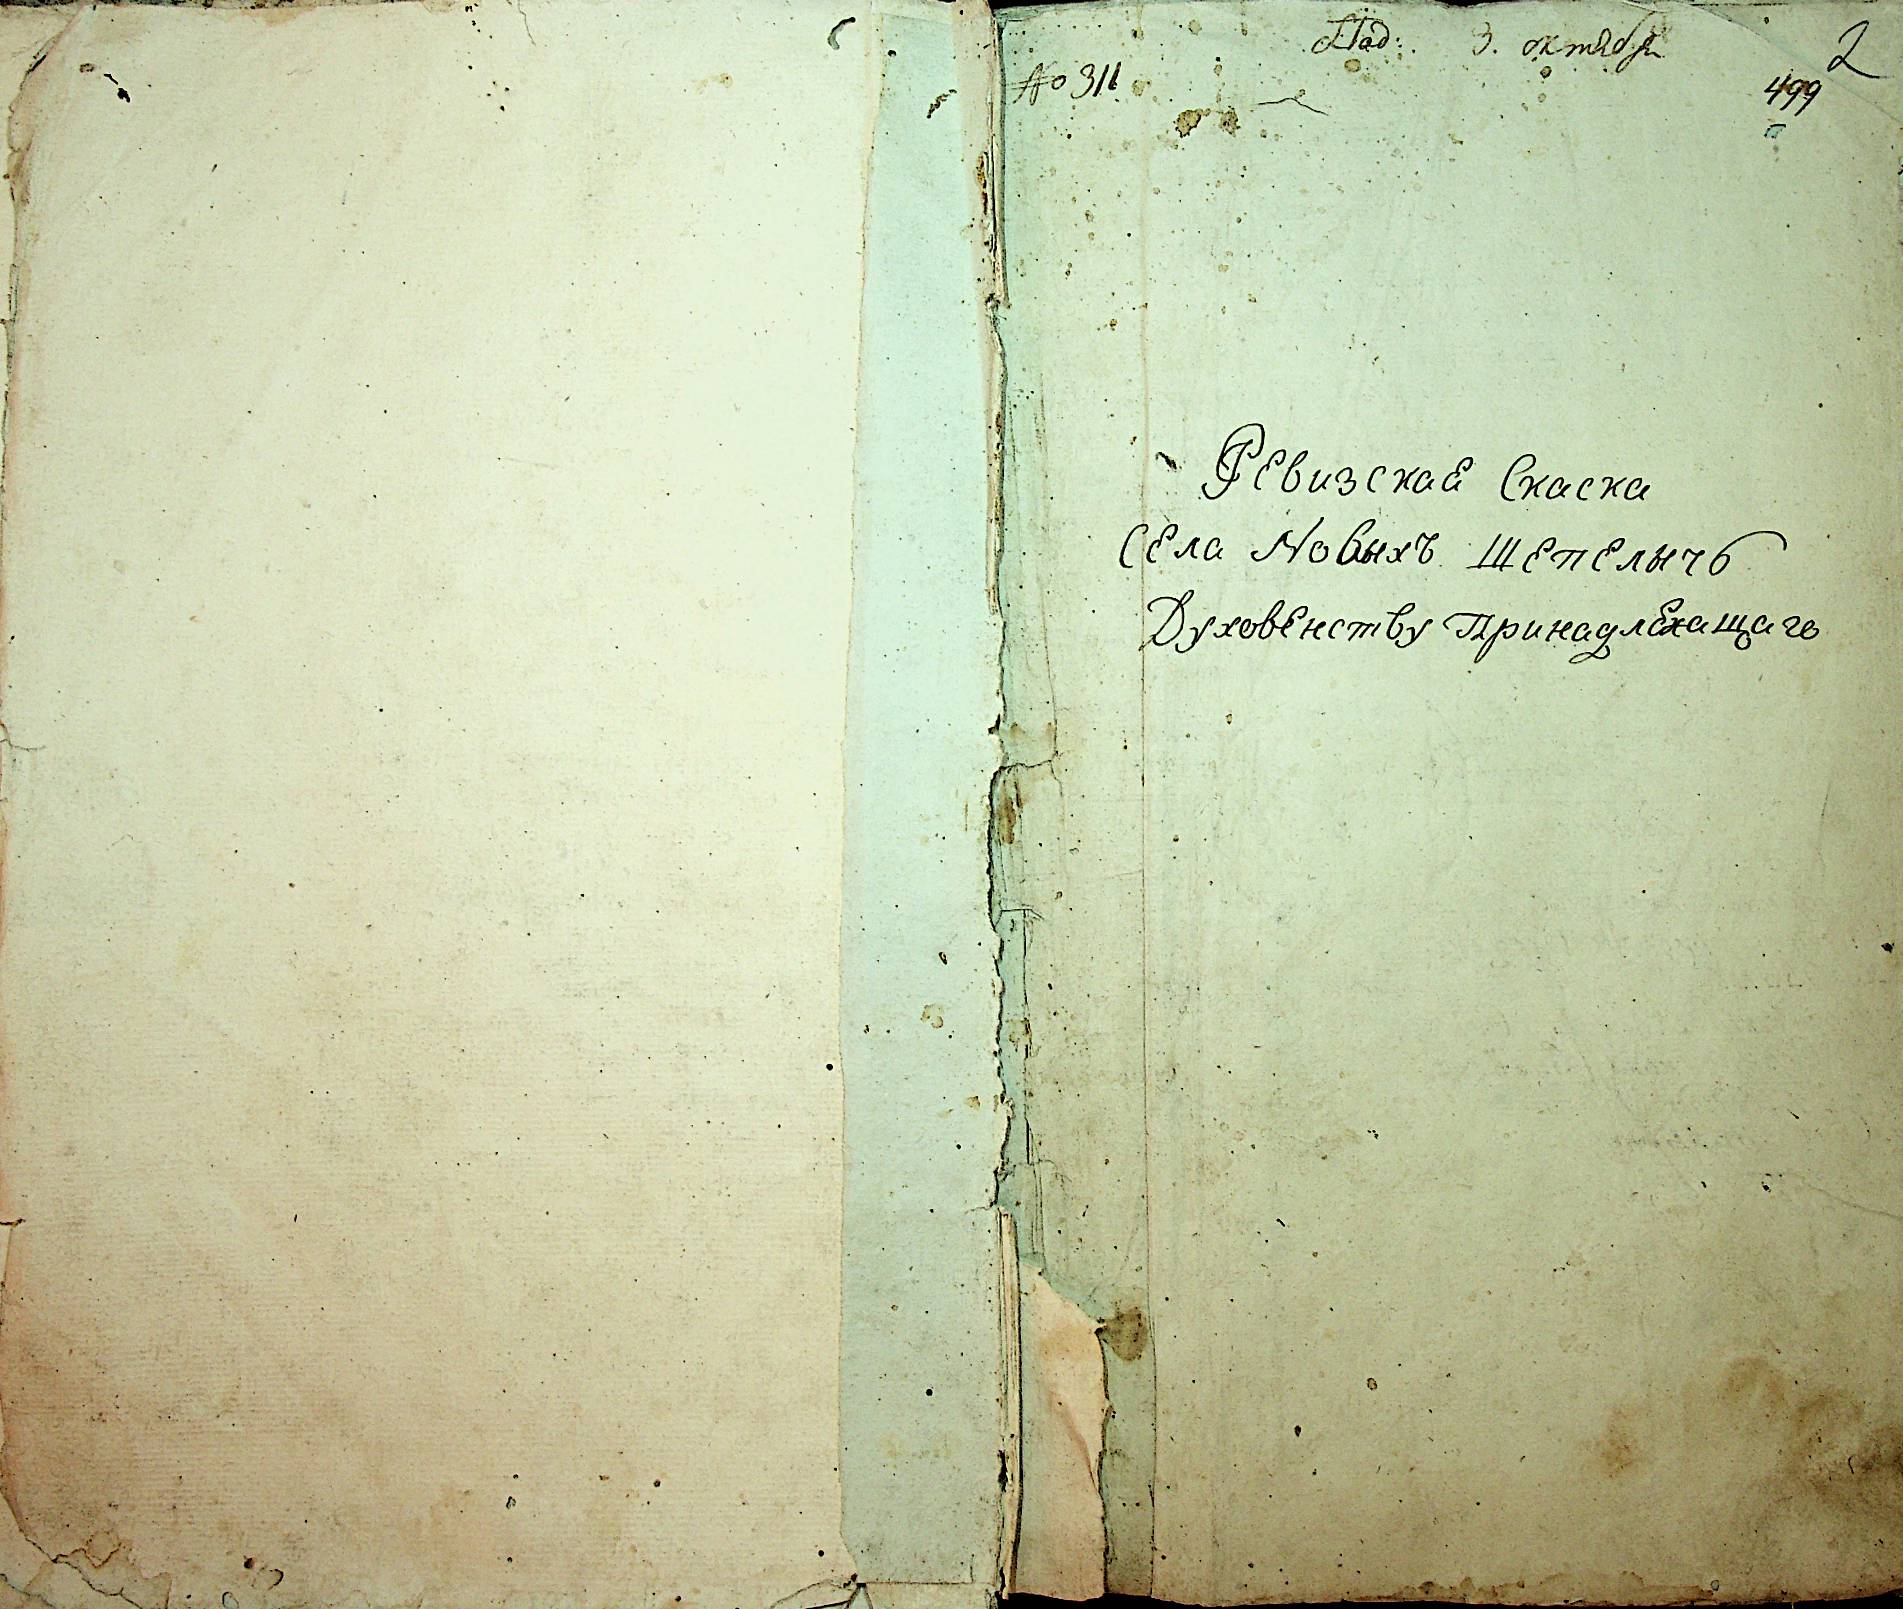 Под: 3. октября
2
№ 311
499
Ревизская Скаска
Села Новыхъ Шепеличь
Духовенству Принадлежащаго